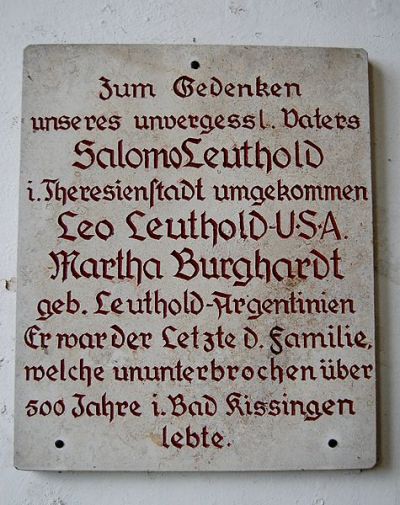 Zum Gedenken
unseres unvergessl. Vaters
Salomo Leuthold
i. Theresienstadt umgekommen
Leo Leuthold-U·S·A.
Martha Burghardt
geb. Leuthold-Argentinien
Er war der Letzte d. Familie,
welche ununterbrochen über
500 Jahre i. Bad Kissingen
lebte.